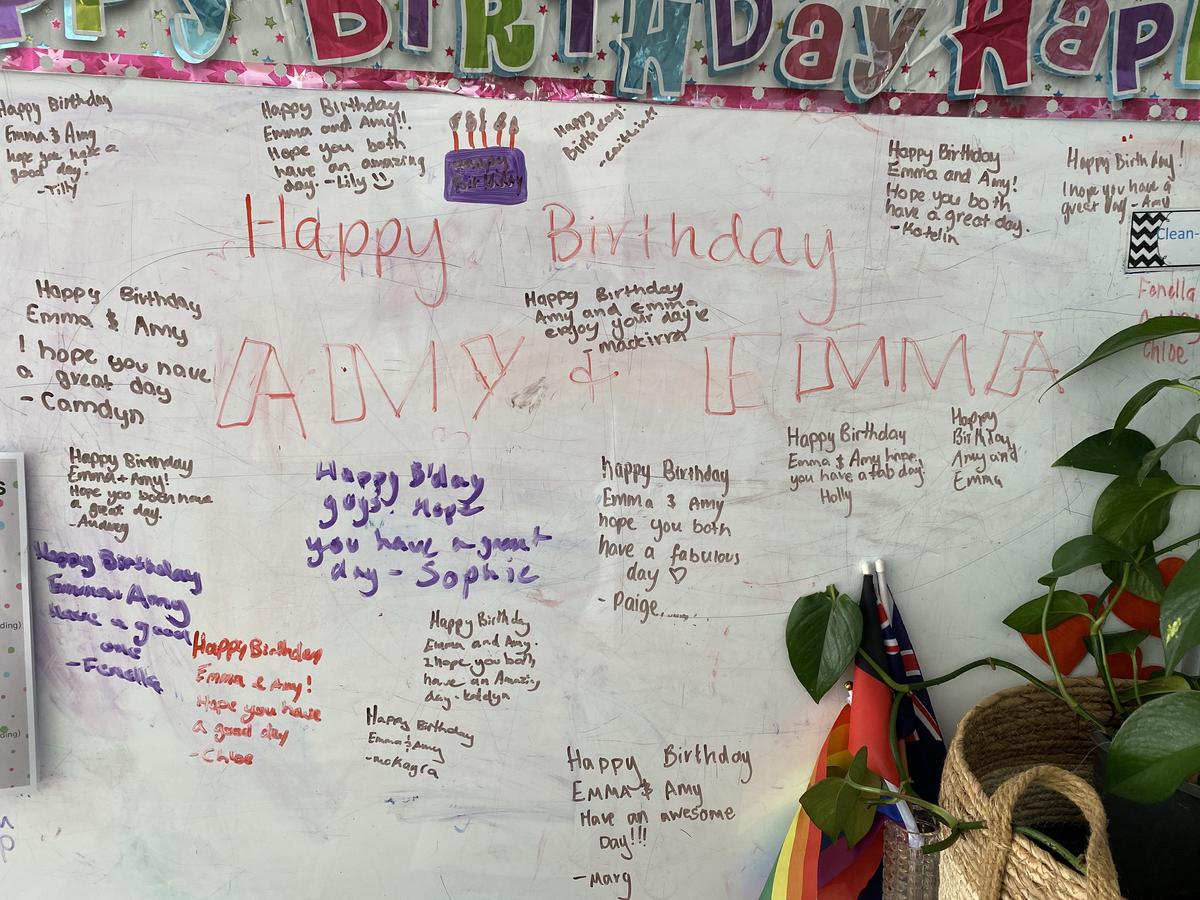 Happy Birthday Hap
Happy Birthday
Emma & Amy
hope you have a
good day.
-Tilly
Happy Birthday
Emma and Amy!!
Hope you both
have an amazing
day. -Lily
Happy
Birthday
Happy
birthday!
-Caitlin
Happy Birthday
Emma and Amy!
Hope you both
have a great day.
-Katelin
Happy Birthday!
I hope you have a
great day - Amy
Clean-
Fenella
Chloe
Happy Birthday
Happy Birthday
Emma & Amy
I hope you have
a great day
- Camdyn
Happy Birthday
Amy and Emma
enjoy your day
mackirra
AMY & EMMA
Happy Birthday
Emma + Amy!
Hope you both have
a great day.
-Audrey
Happy B'day
guys! Hope
you have a great
day - Sophie
Happy Birthday
Emma & Amy
hope you both
have a fabulous
day ♡
- Paige
Happy Birthday
Emma & Amy hope
you have a fab day
Holly
Happy
Birthday
Amy and
Emma
Happy Birthday
Emma Amy
Have a good
one
-Fenella
Happy Birthday
Emma & Amy!
Hope you have
a good day
-Chloe
Happy Birthday
Emma and Amy.
I hope you both
have an Amazing
day - Katelyn
Happy Birthday
Emma & Amy
-McKayra
Happy Birthday
EMMA & Amy
Have an awesome
Day!!!
-Marg